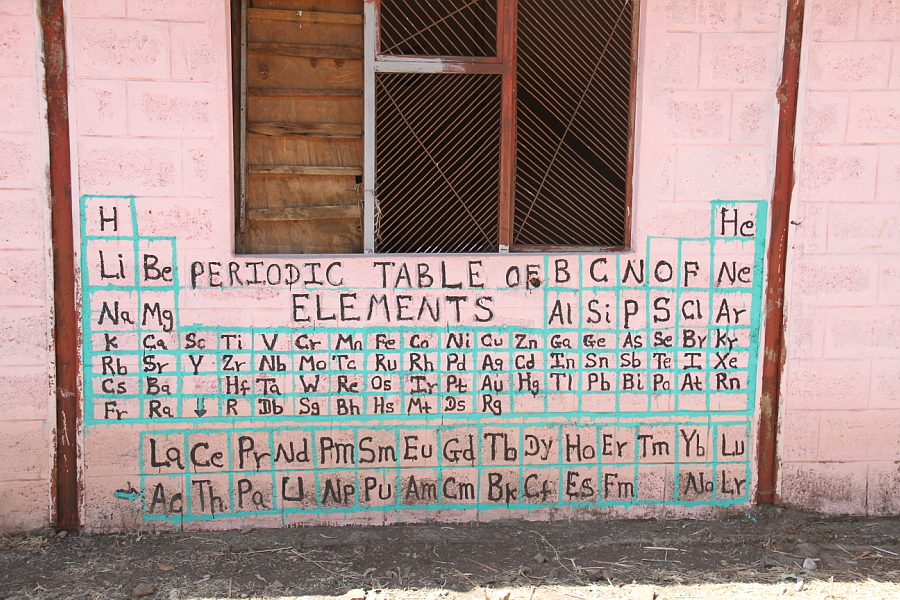 H He
Li Be PERIODIC TABLE OF B C N O F Ne
Na Mg ELEMENTS Al Si P S Cl Ar
K Ca Sc Ti V Cr Mn Fe Co Ni Cu Zn Ga Ge As Se Br Kr
Rb Sr Y Zr Nb Mo Tc Ru Rh Pd Ag Cd In Sn Sb Te I Xe
Cs Ba Hf Ta W Re Os Ir Pt Au Hg Tl Pb Bi Po At Rn
Fr Ra ↓ R Db Sg Bh Hs Mt Ds Rg
La Ce Pr Nd Pm Sm Eu Gd Tb Dy Ho Er Tm Yb Lu
→ Ac Th Pa U Np Pu Am Cm Bk Cf Es Fm No Lr